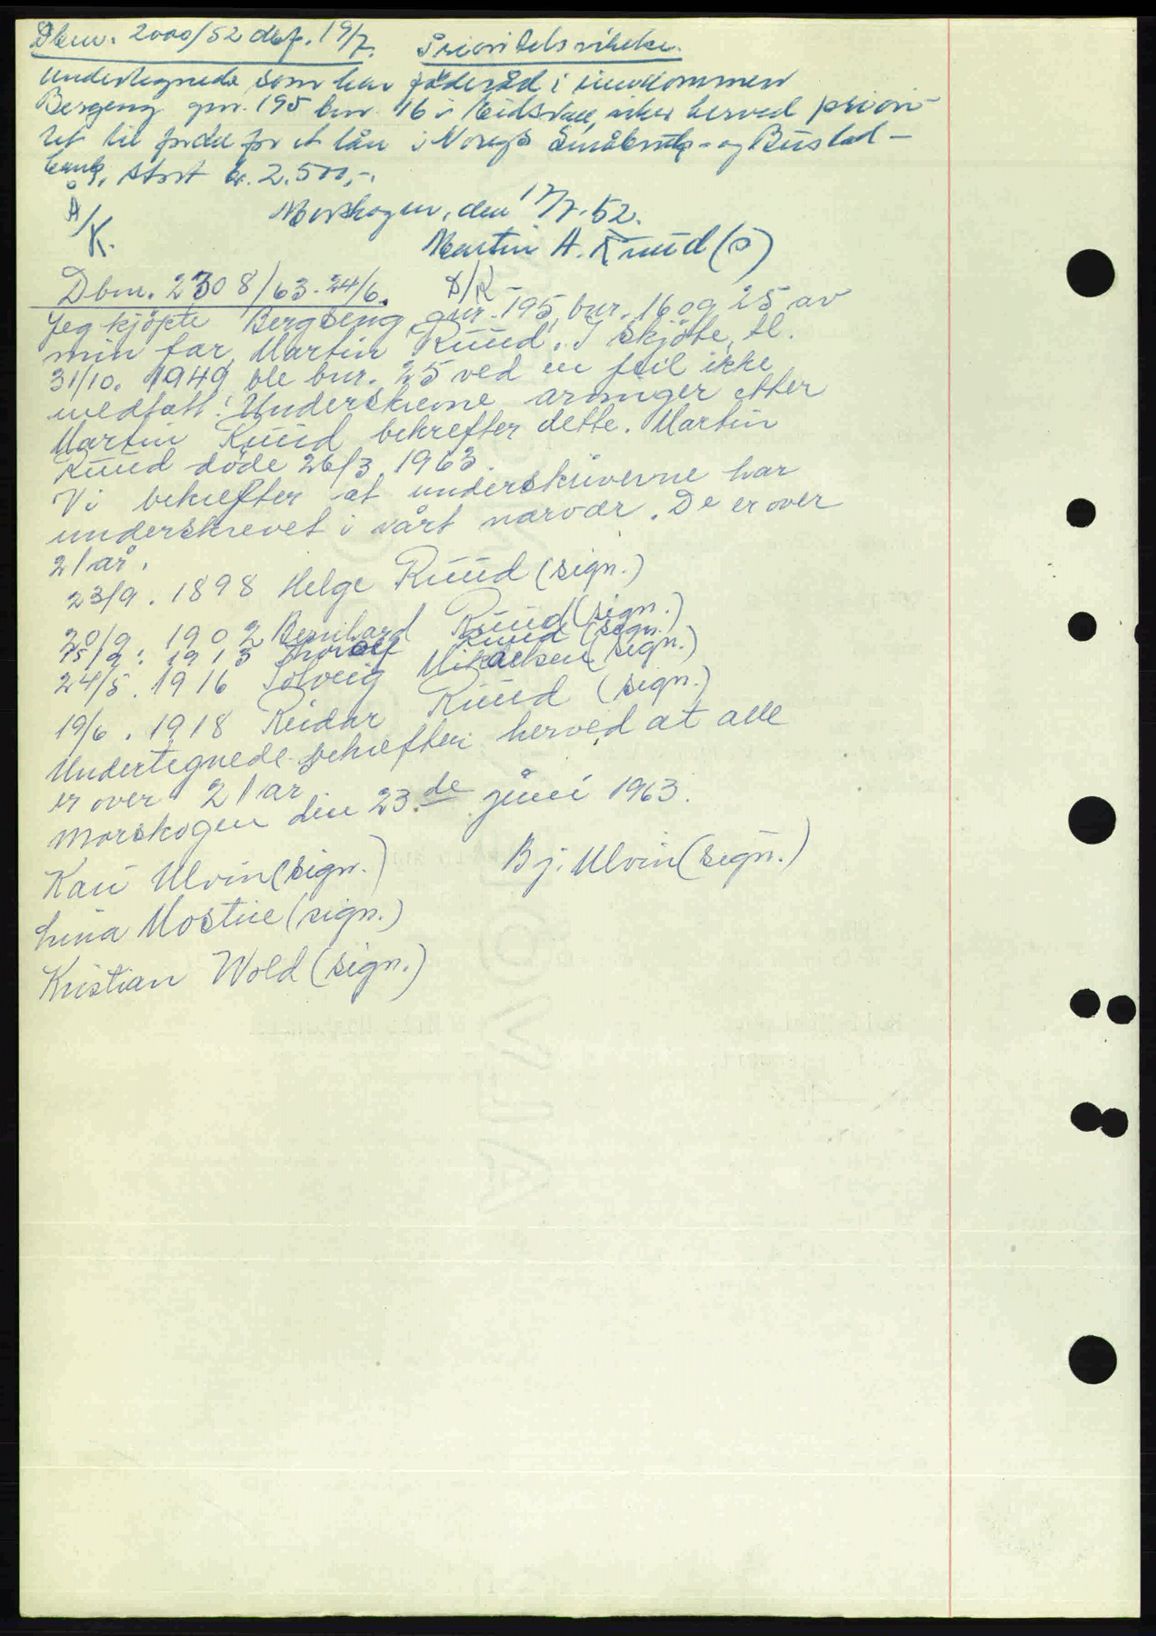 Dbnr. 2000/52 dbf. 19/7. Prioritetsvikelse.
Undertegnede som har föderåd i eiendommen
Bergeng gnr. 195 bnr. 16 i Eidsvoll, viker herved priori-
tet til fordel for et lån i Noregs Småbruk- og Bustad-
bank, stort kr. 2.500,-.
Å/K. Morskogen, den 17/7-52.
Martin A. Ruud (s)
Dbnr. 2308/63-24/6. Å/K
Jeg kjöpte Bergseng, gnr. 195, bnr. 16 og 25 av
min far, Martin Ruud. I skjöte, tl.
31/10. 1949 ble bnr. 25 ved en feil ikke
medtatt. Underskrevne arvinger etter
Martin Ruud bekrefter dette. Martin
Ruud döde 26/3. 1963.
Vi bekrefter at underskriverne har
underskrevet i vårt nærvær. De er over
21 år.
23/9. 1898 Helge Ruud (sign.)
20/9. 1902 Bernhard Ruud (sign.)
1913 Thorolf Ruud (sign.)
24/5. 1916 Solveig Mikaelsen (sign.)
19/6. 1918 Reidar Ruud (sign.)
Undertegnede bekrefter herved at alle
er over 21 år
Morskogen den 23.de juni 1963.
Kari Ulvin (sign.) Bj. Ulvin (sign.)
Lina Mostue (sign.)
Kristian Wold (sign.)